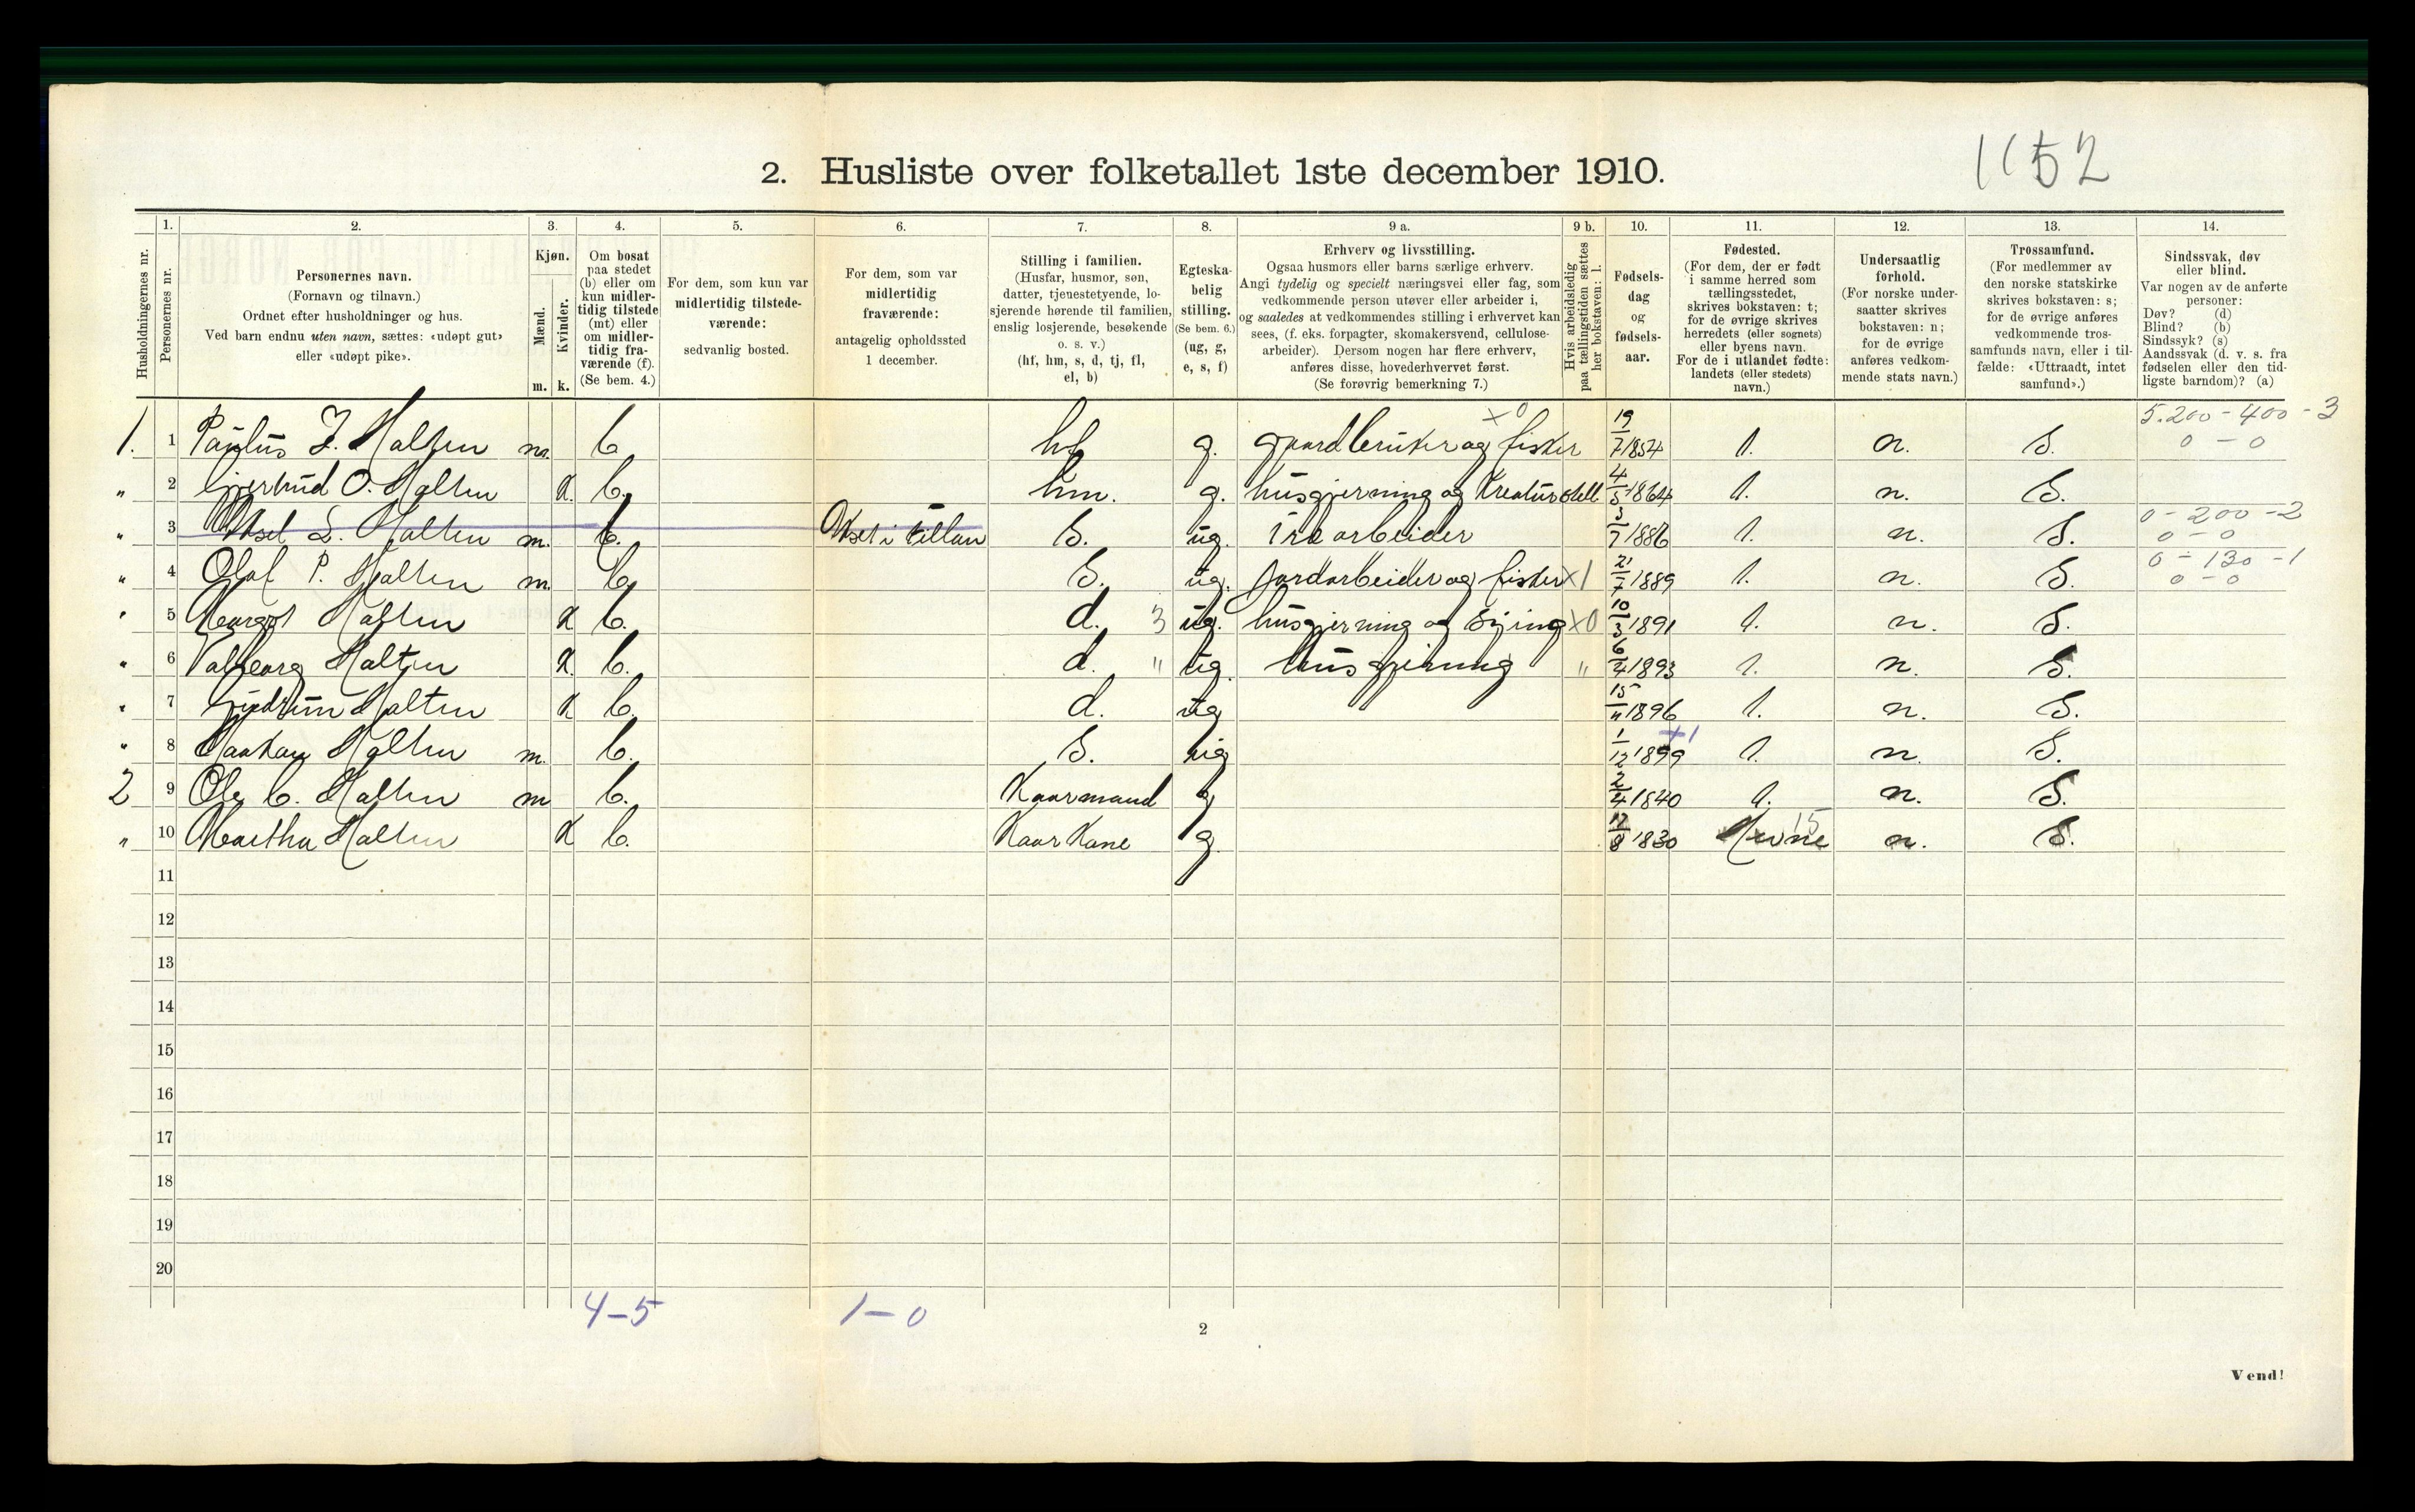 1152
2. Husliste over folketallet 1ste december 1910.
Husholdningernes nr.
1. Personernes nr.
2. Personernes navn. (Fornavn og tilnavn.) Ordnet efter husholdninger og hus. Ved barn endnu uten navn, sættes: «udøpt gut» eller «udøpt pike».
3. Kjøn. Mænd. m. Kvinder. k.
4. Om bosat paa stedet (b) eller om kun midlertidig tilstede (mt) eller om midlertidig fraværende (f). (Se bem. 4.)
5. For dem, som kun var midlertidig tilstedeværende: sedvanlig bosted.
6. For dem, som var midlertidig fraværende: antagelig opholdssted 1 december.
7. Stilling i familien. (Husfar, husmor, søn, datter, tjenestetyende, losjerende hørende til familien, enslig losjerende, besøkende o. s. v.) (hf, hm, s, d, tj, fl, el, b)
8. Egteskabelig stilling. (Se bem. 6.) (ug, g, e, s, f)
9 a. Erhverv og livsstilling. Ogsaa husmors eller barns særlige erhverv. Angi tydelig og specielt næringsvei eller fag, som vedkommende person utøver eller arbeider i, og saaledes at vedkommendes stilling i erhvervet kan sees, (f. eks. forpagter, skomakersvend, cellulosearbeider). Dersom nogen har flere erhverv, anføres disse, hovederhvervet først. (Se forøvrig bemerkning 7.)
9 b. Hvis arbeidsledig paa tællingstiden sættes her bokstaven: l.
10. Fødselsdag og fødselsaar.
11. Fødested. (For dem, der er født i samme herred som tællingsstedet, skrives bokstaven: t; for de øvrige skrives herredets (eller sognets) eller byens navn. For de i utlandet fødte: landets (eller stedets) navn.)
12. Undersaatlig forhold. (For norske undersaatter skrives bokstaven: n; for de øvrige anføres vedkommende stats navn.)
13. Trossamfund. (For medlemmer av den norske statskirke skrives bokstaven: s; for de øvrige anføres vedkommende trossamfunds navn, eller i tilfælde: «Uttraadt, intet samfund».)
14. Sindssvak, døv eller blind. Var nogen av de anførte personer: Døv? (d) Blind? (b) Sindssyk? (s) Aandssvak (d. v. s. fra fødselen eller den tidligste barndom)? (a)
5.200 - 400 - 3
1. 1 Paulus J. Halten m. b. hf g. gaardbruker og fisker x0 19/7 1854 t. n. S. 0 - 0
" 2 Gjertrud O. Halten k. b. hm. g. husgjerning og Kreaturstell 4/5 1864 t. n. S.
0 - 200 - 2
" 3 Halten m. b. S. ug. arbeider 3/7 1886 t. n. S. 0 - 0
0 - 130 - 1
" 4 Olaf P. Halten m. b. S. ug. Jordarbeider og fisker x1 21/7 1889 t. n. S. 0 - 0
" 5 Margot Halten k b. d. 3 ug. husgjerning og Sying x0 10/3 1891 t. n. S.
" 6 Valborg Halten k. b. d. " ug. husgjerning " 6/4 1893 t. n. S.
" 7 Gudrun Halten k b. d. ug 15/11 1896 t. n. S.
" 8 Haakon Halten m. b. S. ug 1/12 1899 +1 t. n. S.
2 9 Ole C. Halten m b. Kaarmand g 2/4 1840 t. n. S.
" 10 Martha Halten k b. Kaar Kone g. 12/8 1830 Hevne 15 n. S.
11
12
13
14
15
16
17
18
19
20
4-5 1-0
2
Vend!